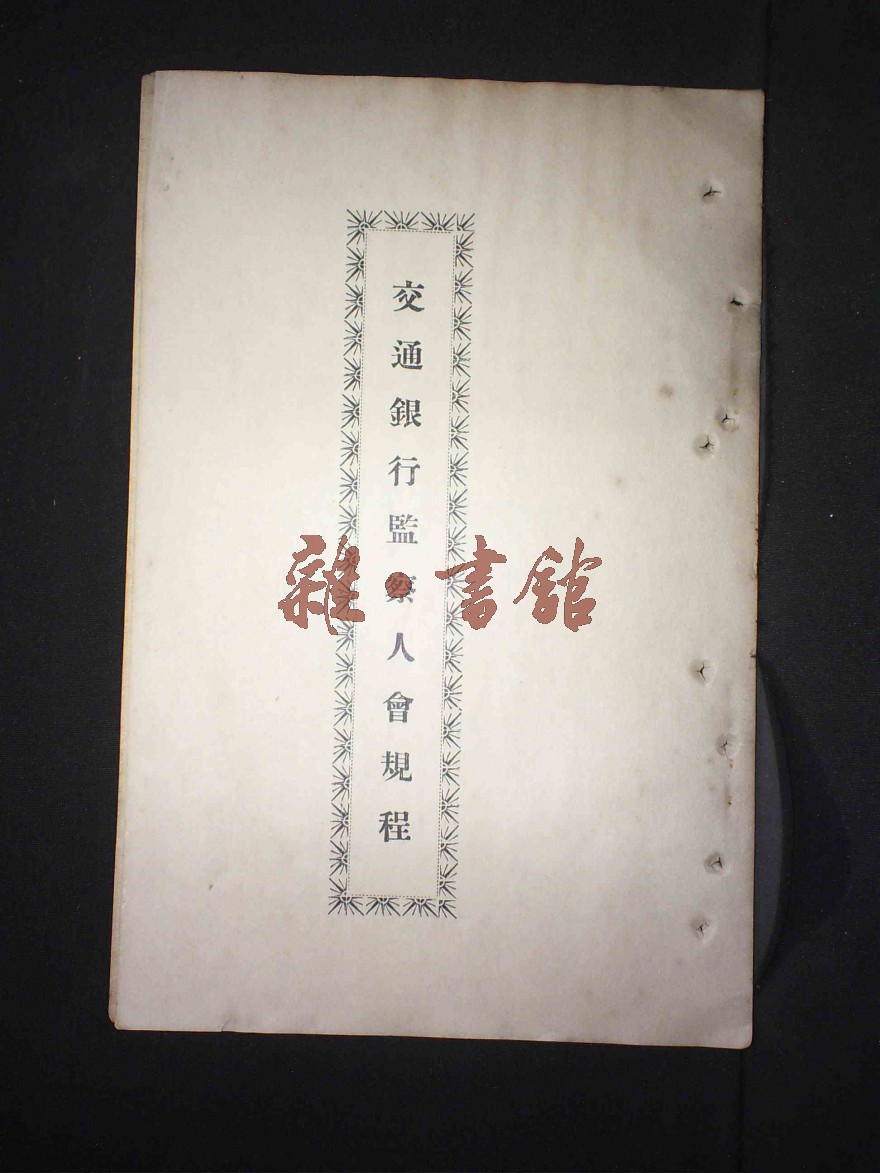 交通銀行監察人會規程
雜·書館